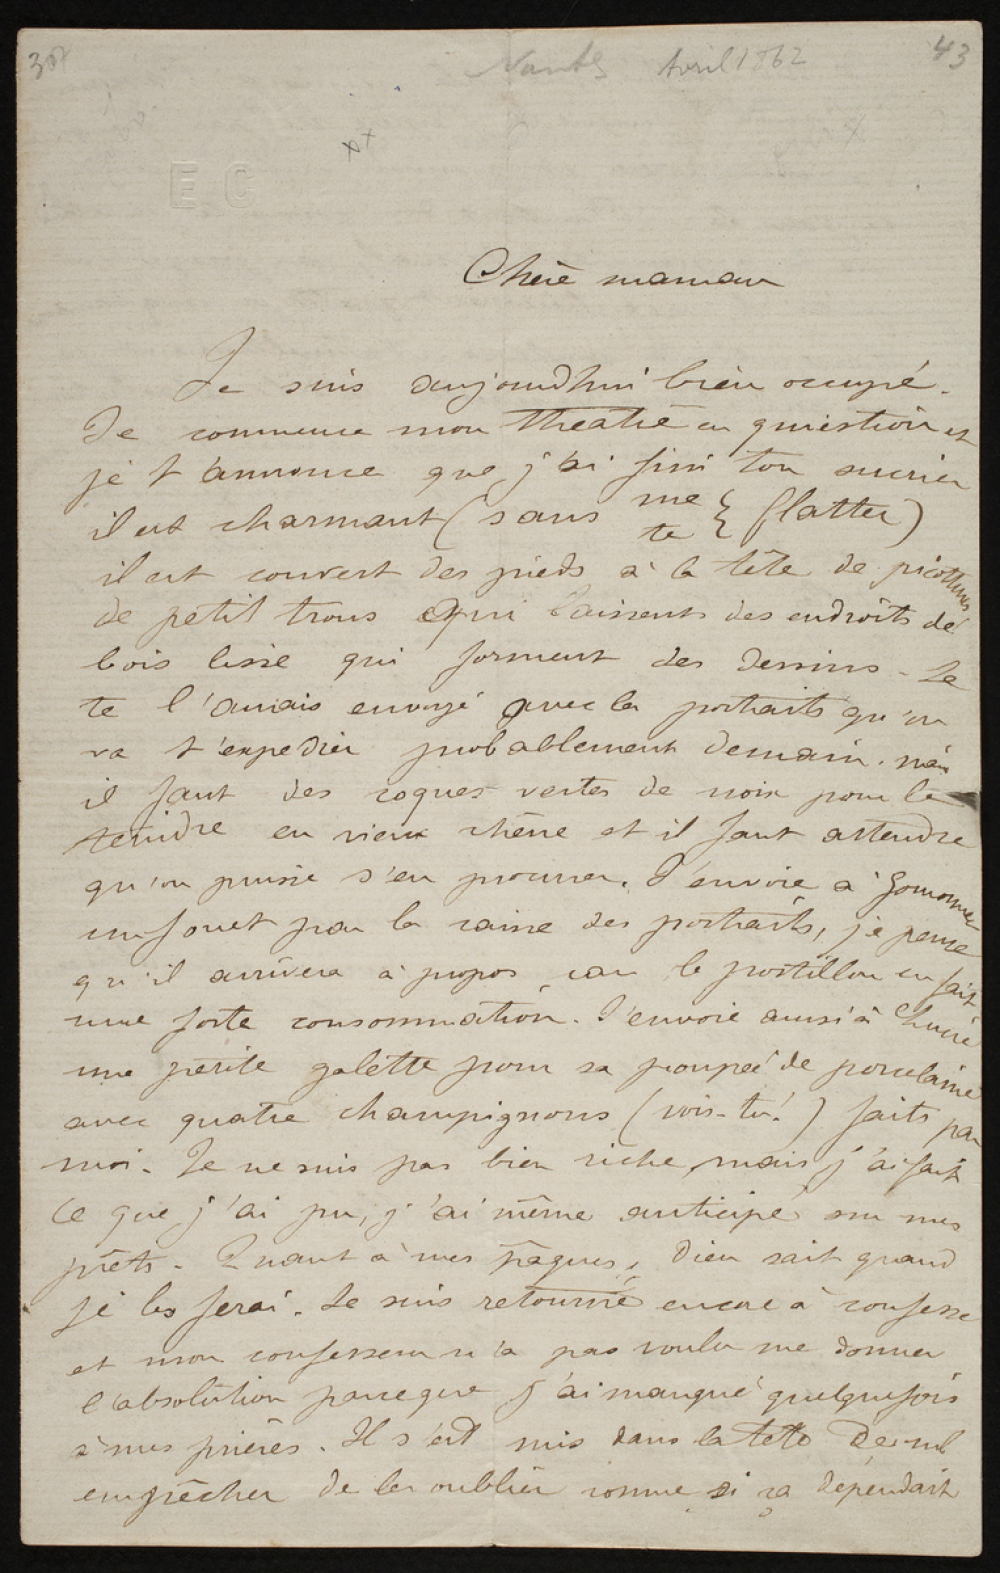 43
Nantes Avril 1862
E C
Chère maman
Je suis aujourd'hui bien occupé.
Je commence mon théatre en question et
je t'annonce que j'ai fini ton sucrier
il est charmant (sans me te } flatter)
il est couvert des pieds à la tête de picottures
de petit trous qui laissent des endroits de
bois lisse qui forment des dessins - Je
te l'aurais envoyé avec les portraits qu'on
va t'expedier probablement demain. mais
il faut des coques vertes de noix pour le
teindre en vieux chêne et il faut attendre
qu'on puisse s'en procurer. J'envoie à
un fouet par la caisse des portraits, je pense
qu'il arrivera à propos car le postillon en fait
une forte consommation. J'envoie aussi à
une petite galette pour sa poupée de porcelaine
avec quatre champignons (vois-tu!) faits par
moi. Je ne suis pas bien riche, mais j'ai fait
ce que j'ai pu, j'ai même anticipé sur mes
prêts. Quant à mes pâques, Dieu sait quand
je les ferai. Je suis retourné encore à confesse
et mon confesseur n'a pas voulu me donner
l'absolution parceque j'ai manqué quelquefois
à mes prières. Il s'est mis dans la tête de
empêcher de les oublier comme si ça dépendait